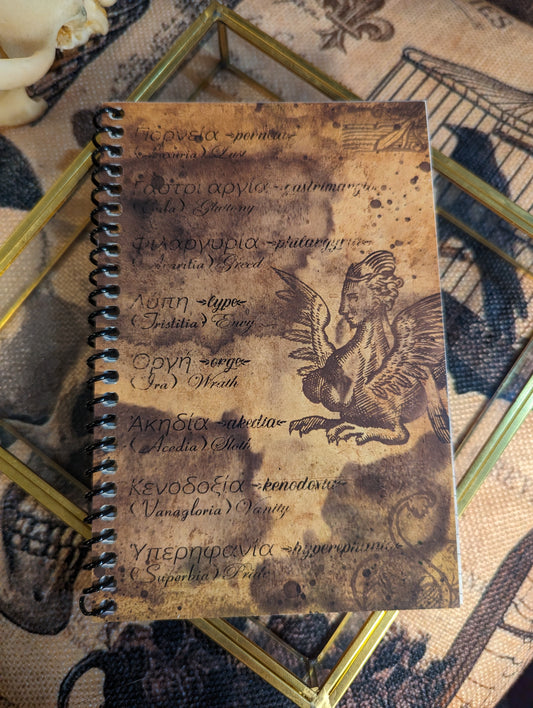 Πορνεία porneia
(Luxuria) Lust
Γαστριμαργία gastrimargia
(Gula) Gluttony
Φιλαργυρία philargyria
(Avaritia) Greed
Λύπη lype
(Tristitia) Envy
Οργή orge
(Ira) Wrath
Ἀκηδία akedia
(Acedia) Sloth
Κενοδοξία kenodoxia
(Vanagloria) Vanity
Ὑπερηφανία hyperephania
(Superbia) Pride